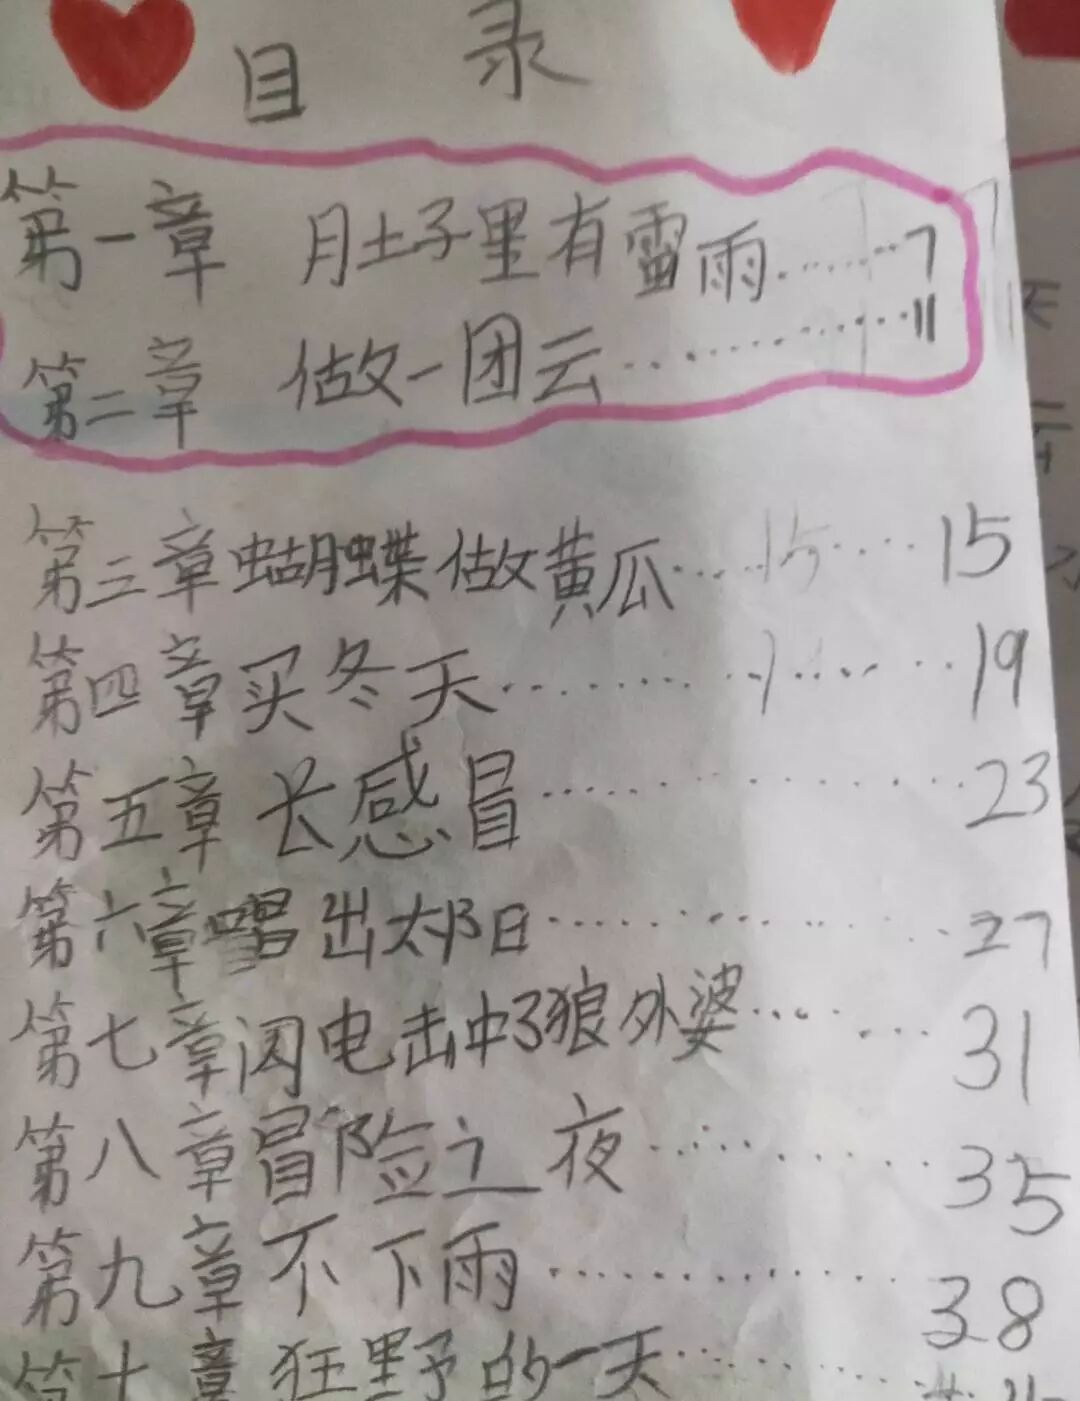 目 录
第一章 肚子里有雷雨......7
第二章 做一团云............11
第三章 蝴蝶做黄瓜..... 15 .... 15
第四章 买冬天............19
第五章 长感冒............23
第六章 唱出太阳............27
第七章 闪电击中了狼外婆......31
第八章 冒险之夜............35
第九章 不下雨............38
第十章 狂野的一天......